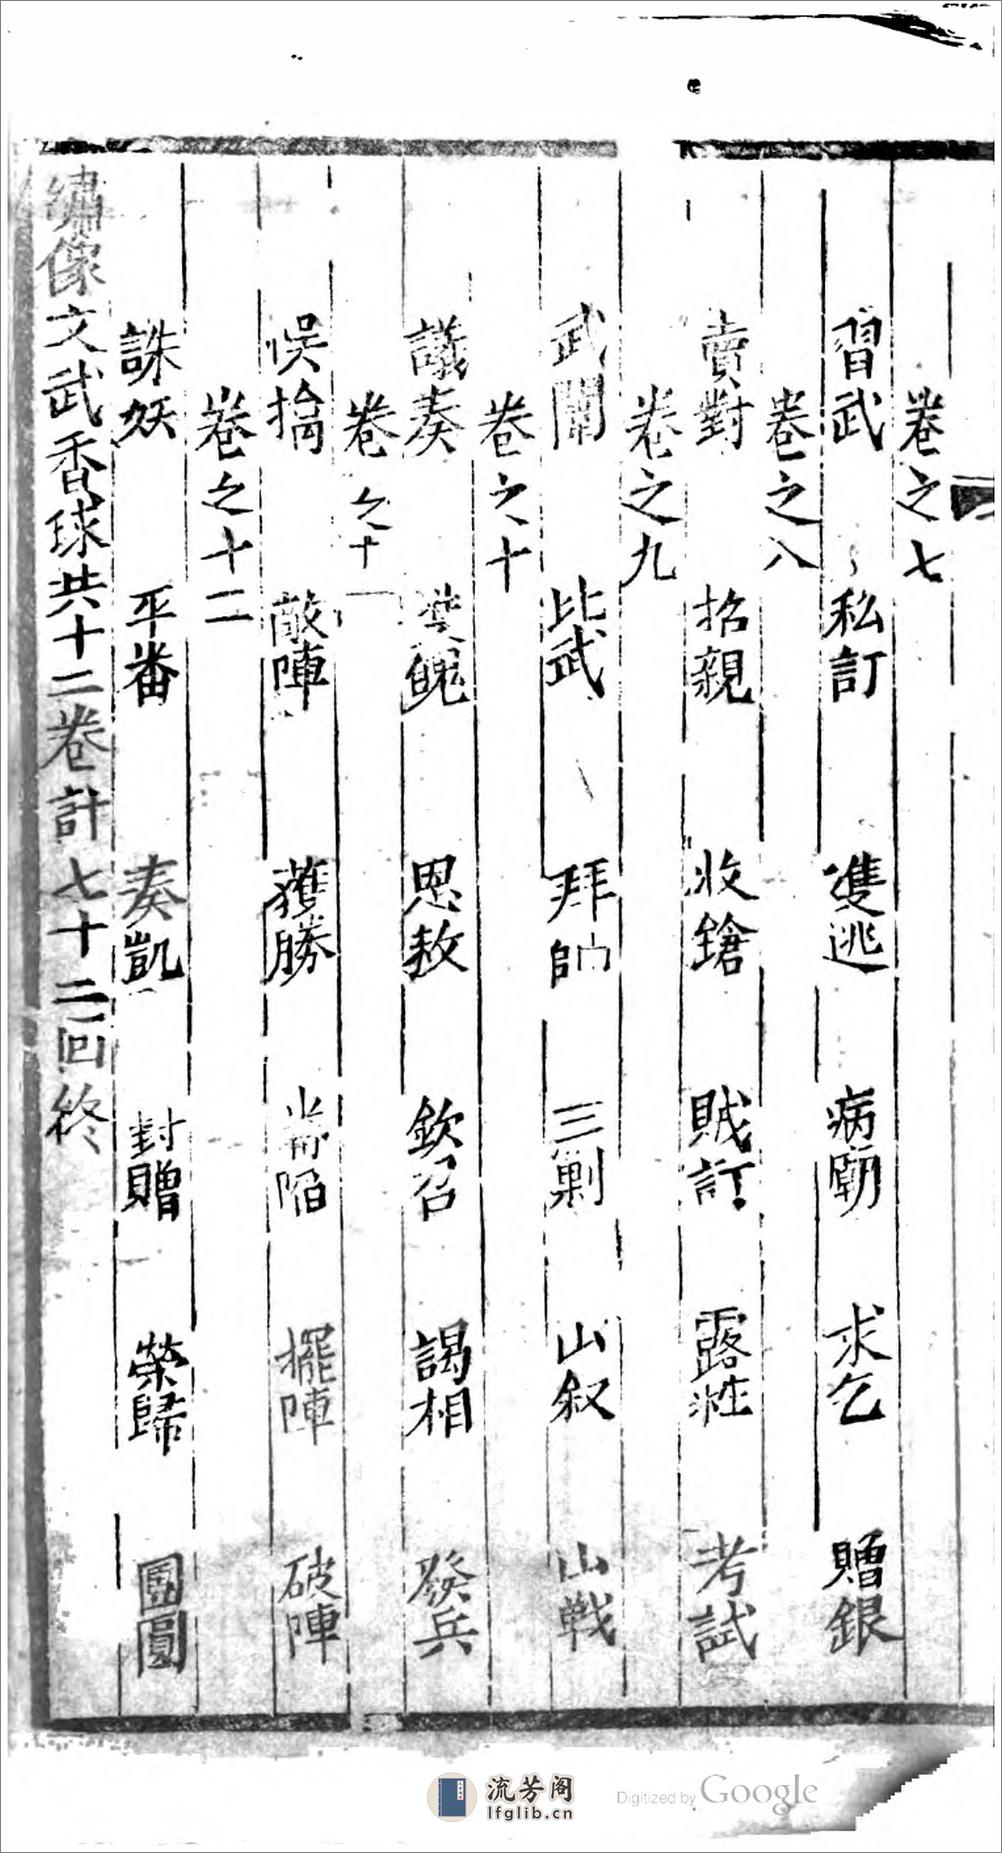 卷之七
習武 私訂 雙逃 病廟 求乞 贈銀
卷之八
賣對 招親 收鎗 賊訂 露性 考試
卷之九
武闈 比武 拜帥 三剿 山叙 山戰
卷之十
議奏 愧 恩赦 欽召 謁相 發兵
卷之十一
悞擒 敵陣 獲勝 陷 擺陣 破陣
卷之十二
誅妖 平番 奏凱 封贈 榮歸 團圓
繡像文武香球共十二卷計七十二回終
流芳阁
lfglib.cn
Digitized by Google